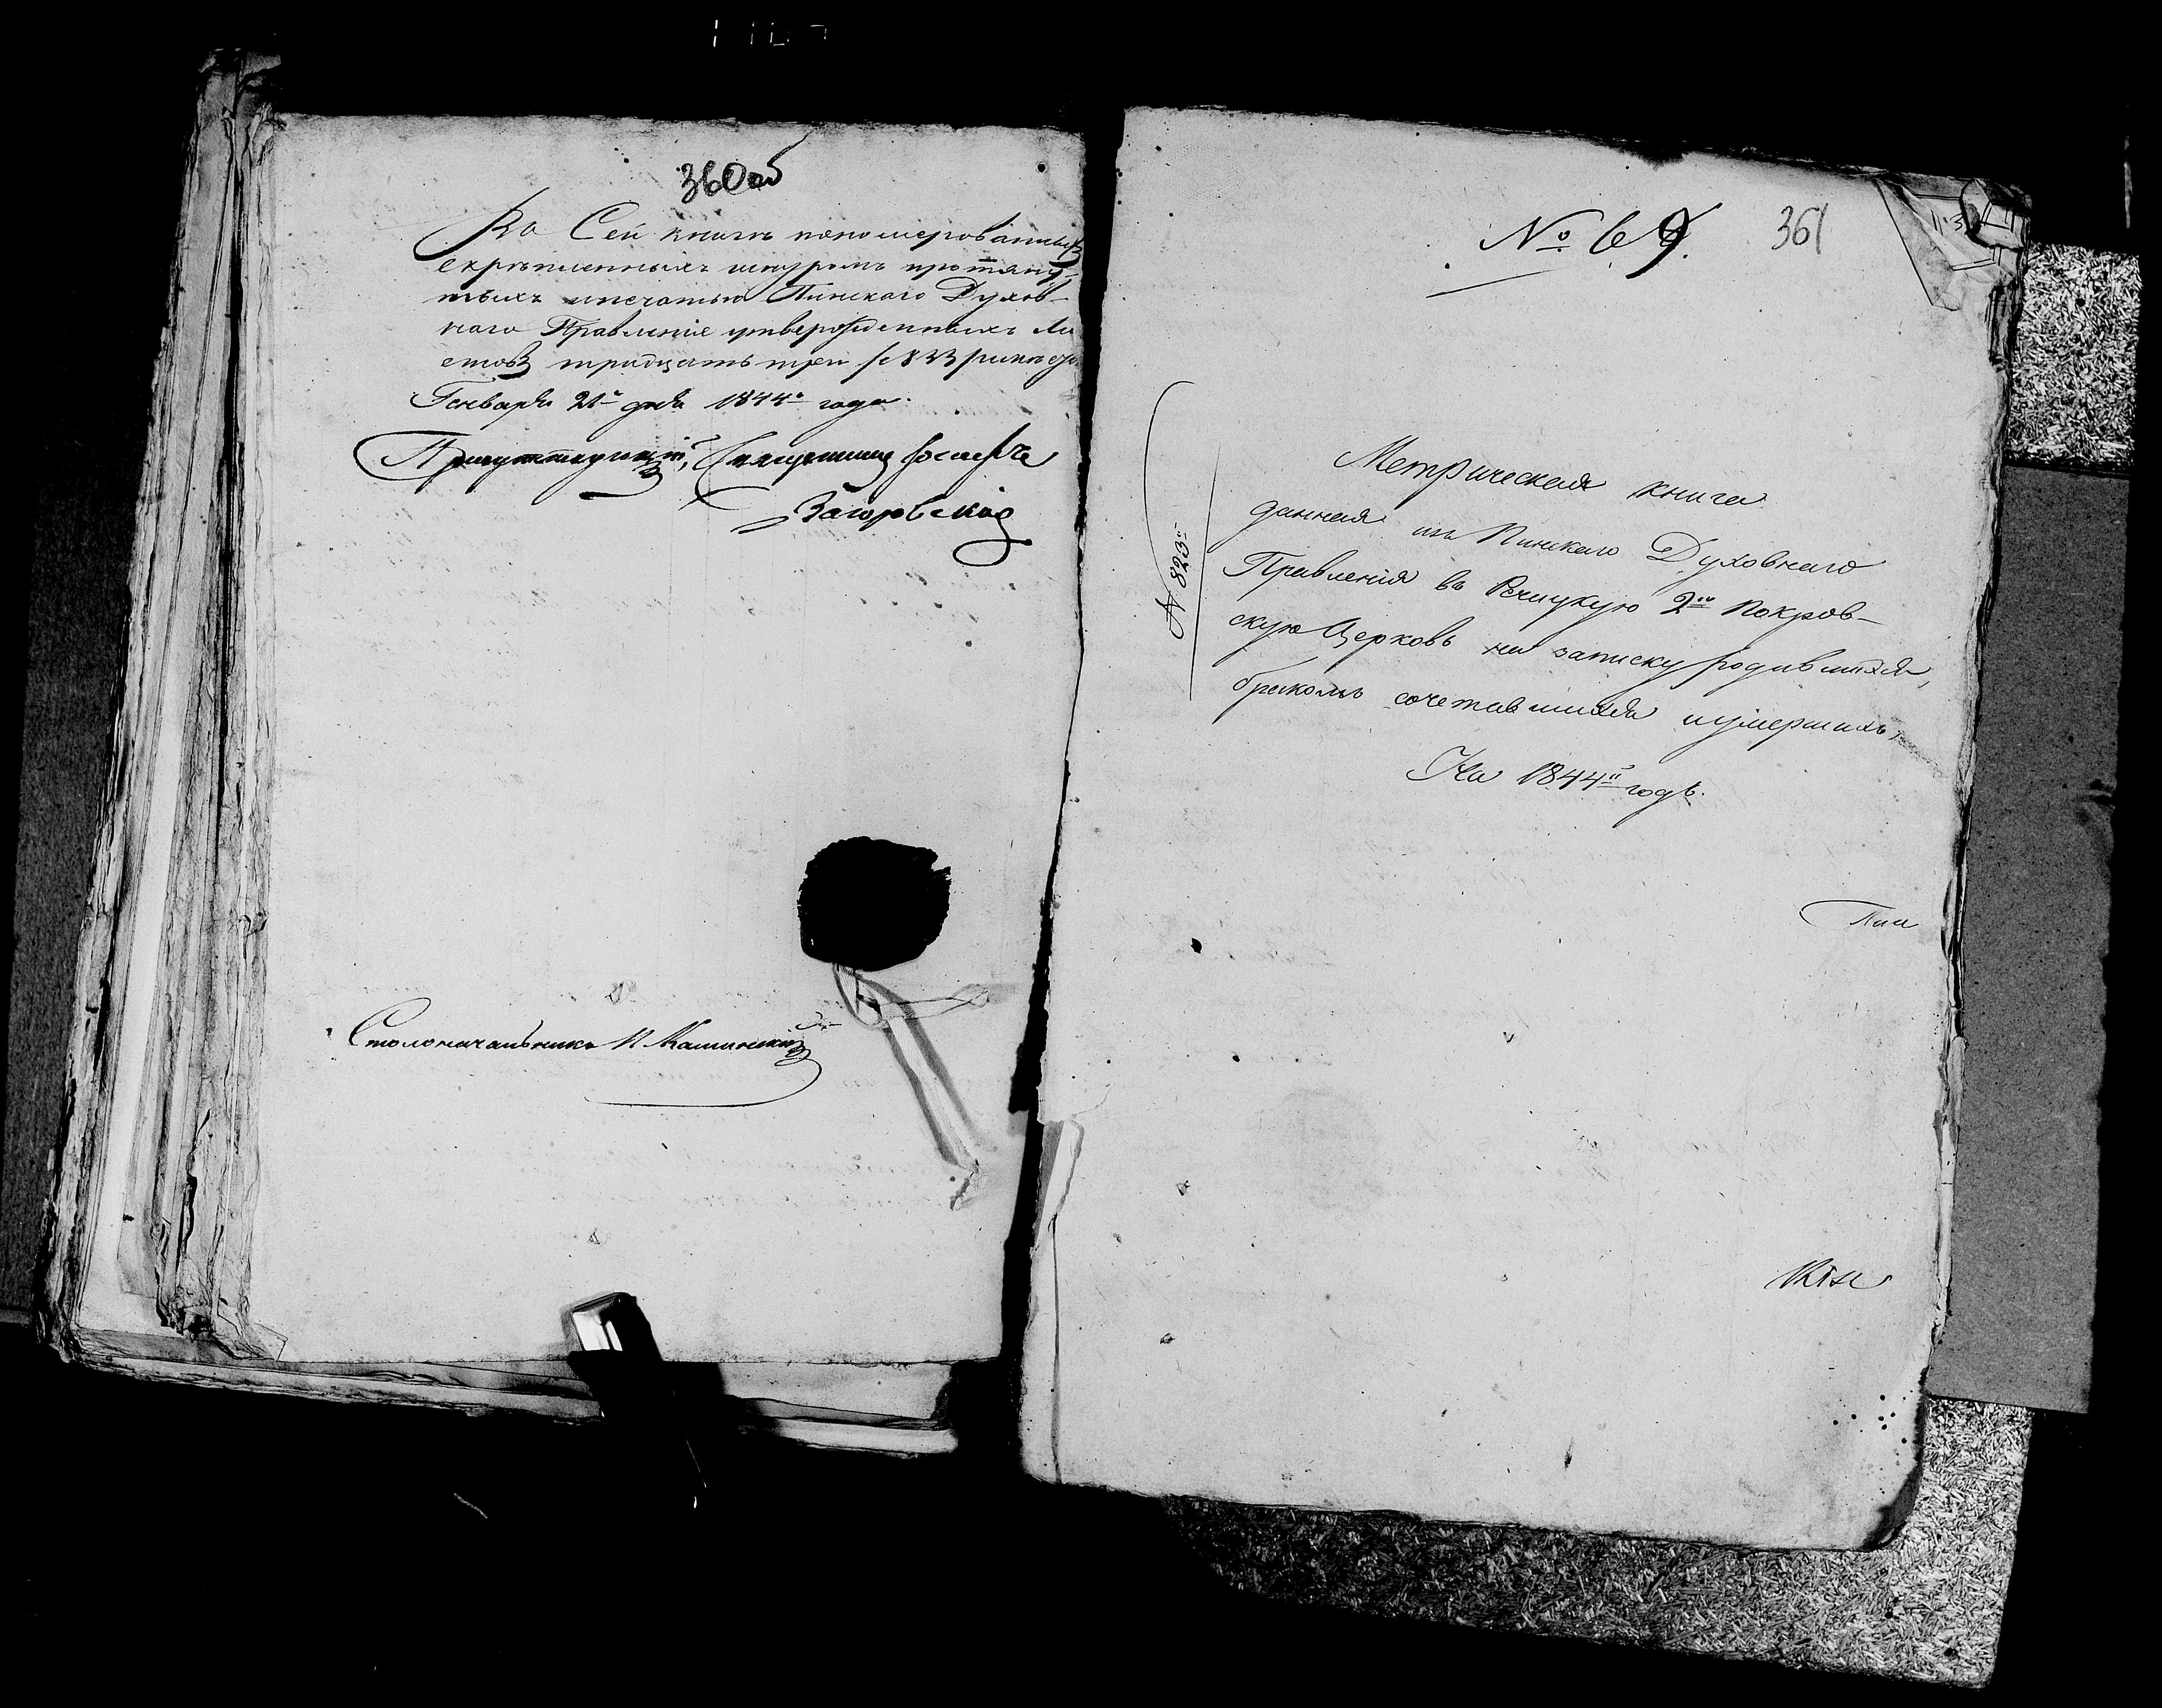 360об
Въ Сей книгѣ пономерованныхъ
скрѣпленныхъ шнуромъ протяну-
тыхъ и печатью Пинскаго Духов-
наго Правленія утвержденныхъ ли
стовъ тридцать три
Генваря 21го дня 1844го года.
Присутствующій, Священникъ Іосифъ
Загоровскій
Столоначальникъ
№ 69. 361
№ 823й
Метрическая книга
данная изъ Пинскаго Духовнаго
Правленія въ Речицкую 2ю Покров-
скую Церковь на записку родившихся,
бракомъ сочетавшихся и умершихъ,
На 1844й годъ.
Пин